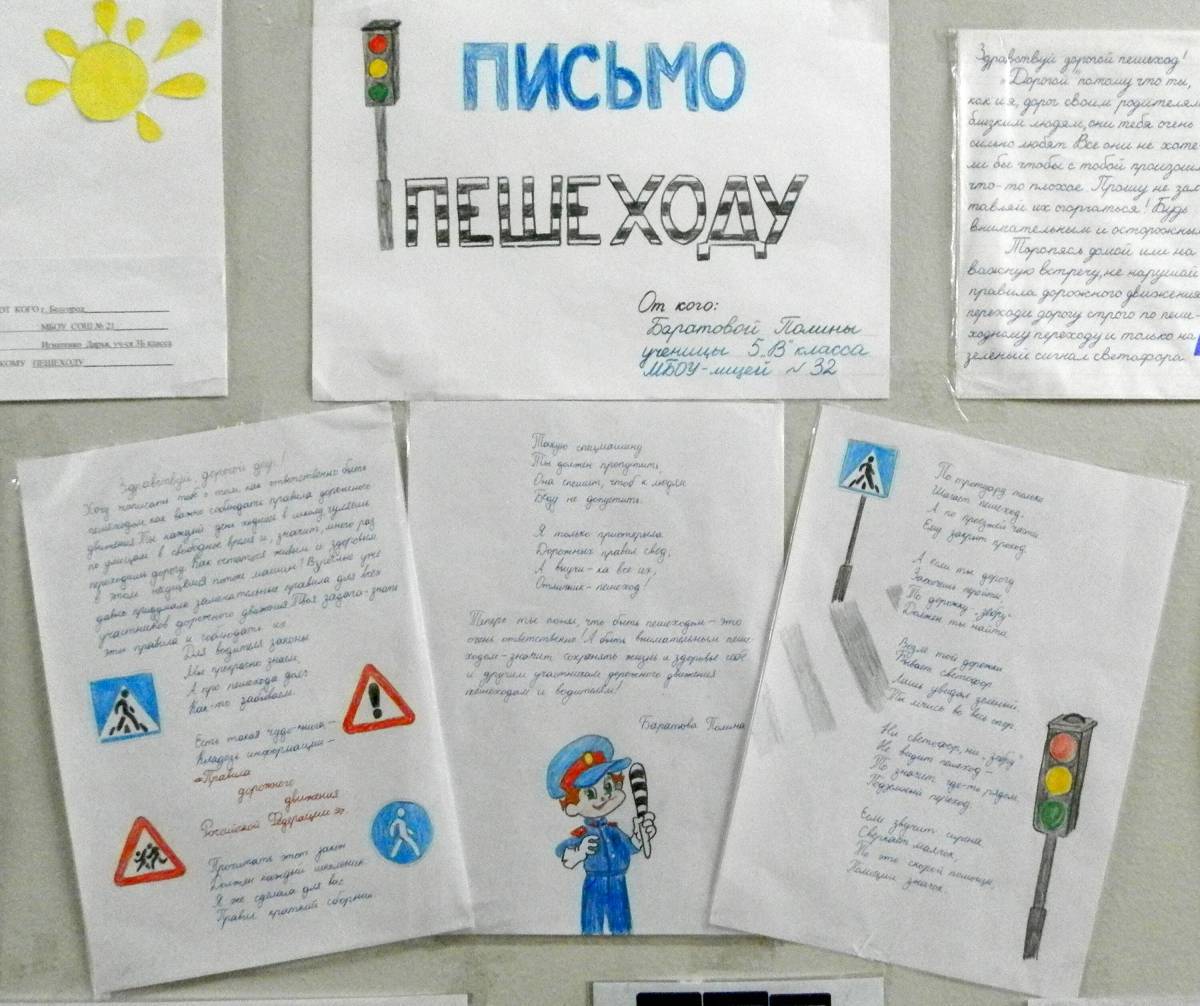 ОТ КОГО г. Белгород
МБОУ СОШ № 21
Игнатенко Дарья, уч-ся 3Б класса
КОМУ ПЕШЕХОДУ
ПИСЬМО
ПЕШЕХОДУ
От кого:
Баратовой Полины
ученицы 5 „В" класса
МБОУ-лицей №32
Здравствуй дорогой пешеход!
„Дорогой" потому что ты,
как и я, дорог своим родителям
близким людям, они тебя очень
сильно любят. Все они не хоте-
ли бы чтобы с тобой произошло
что-то плохое. Прошу не зас
тавляй их огорчаться! Будь
внимательным и осторожным
Торопясь домой или на
важную встречу, не нарушай
правила дорожного движения
переходи дорогу строго по пеше-
ходному переходу и только на
зеленый сигнал светофора
Здравствуй, дорогой друг!
Хочу написать тебе о том, как ответственно быть
пешеходом, как важно соблюдать правила дорожного
движения. Ты каждый день ходишь в школу, гуляешь
по улицам в свободное время и, значит, много раз
переходишь дорогу. Как остаться живым и здоровым
в этом несущемся потоке машин? Взрослые уже
давно придумали замечательные правила для всех
участников дорожного движения. Твоя задача-знать
эти правила и соблюдать их.
Для водителя законы
Мы прекрасно знаем,
А про пешехода долг
Как-то забываем.
Есть такая чудо-книга –
Кладезь информации –
«Правила
дорожного
движения
Российской Федерации».
Прочитать этот закон
Должен каждый школьник.
Я же сделала для вас
Правил краткий сборник.
Такую спецмашину
Ты должен пропустить,
Она спешит, чтоб к людям
Беду не допустить.
Я только приоткрыла
Дорожных правил свод,
А выучи-ка все их,
Отличник-пешеход!
Теперь ты понял, что быть пешеходом – это
очень ответственно! А быть внимательным пеше-
ходом-значит сохранять жизнь и здоровье себе
и другим участникам дорожного движения
пешеходам и водителям!
Баратова Полина
По тротуару только
Шагает пешеход,
А по проезжей части
Ему закрыт проход.
А если ты дорогу
Захочешь пройти,
То дорожку-„зебру"
Должен ты найти.
Возле той дорожки
Бывает светофор.
Лишь увидал зеленый,
Ты мчись во весь опор.
Ни светофор, ни „зебру"
Не видит пешеход –
То значит где-то рядом,
Подземный переход.
Если звучит сирена,
Сверкает маячок,
То это скорой помощи,
Полиции значок.